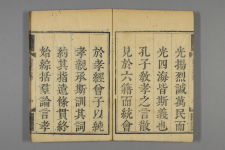 光揚烈誠萬民而
光四海皆斯義也
孔子敎孝之言散
見於六籍而統會
於孝經曾子以純
孝親承斯訓其詞
約其指遠條貫終
始綜括羣論言孝